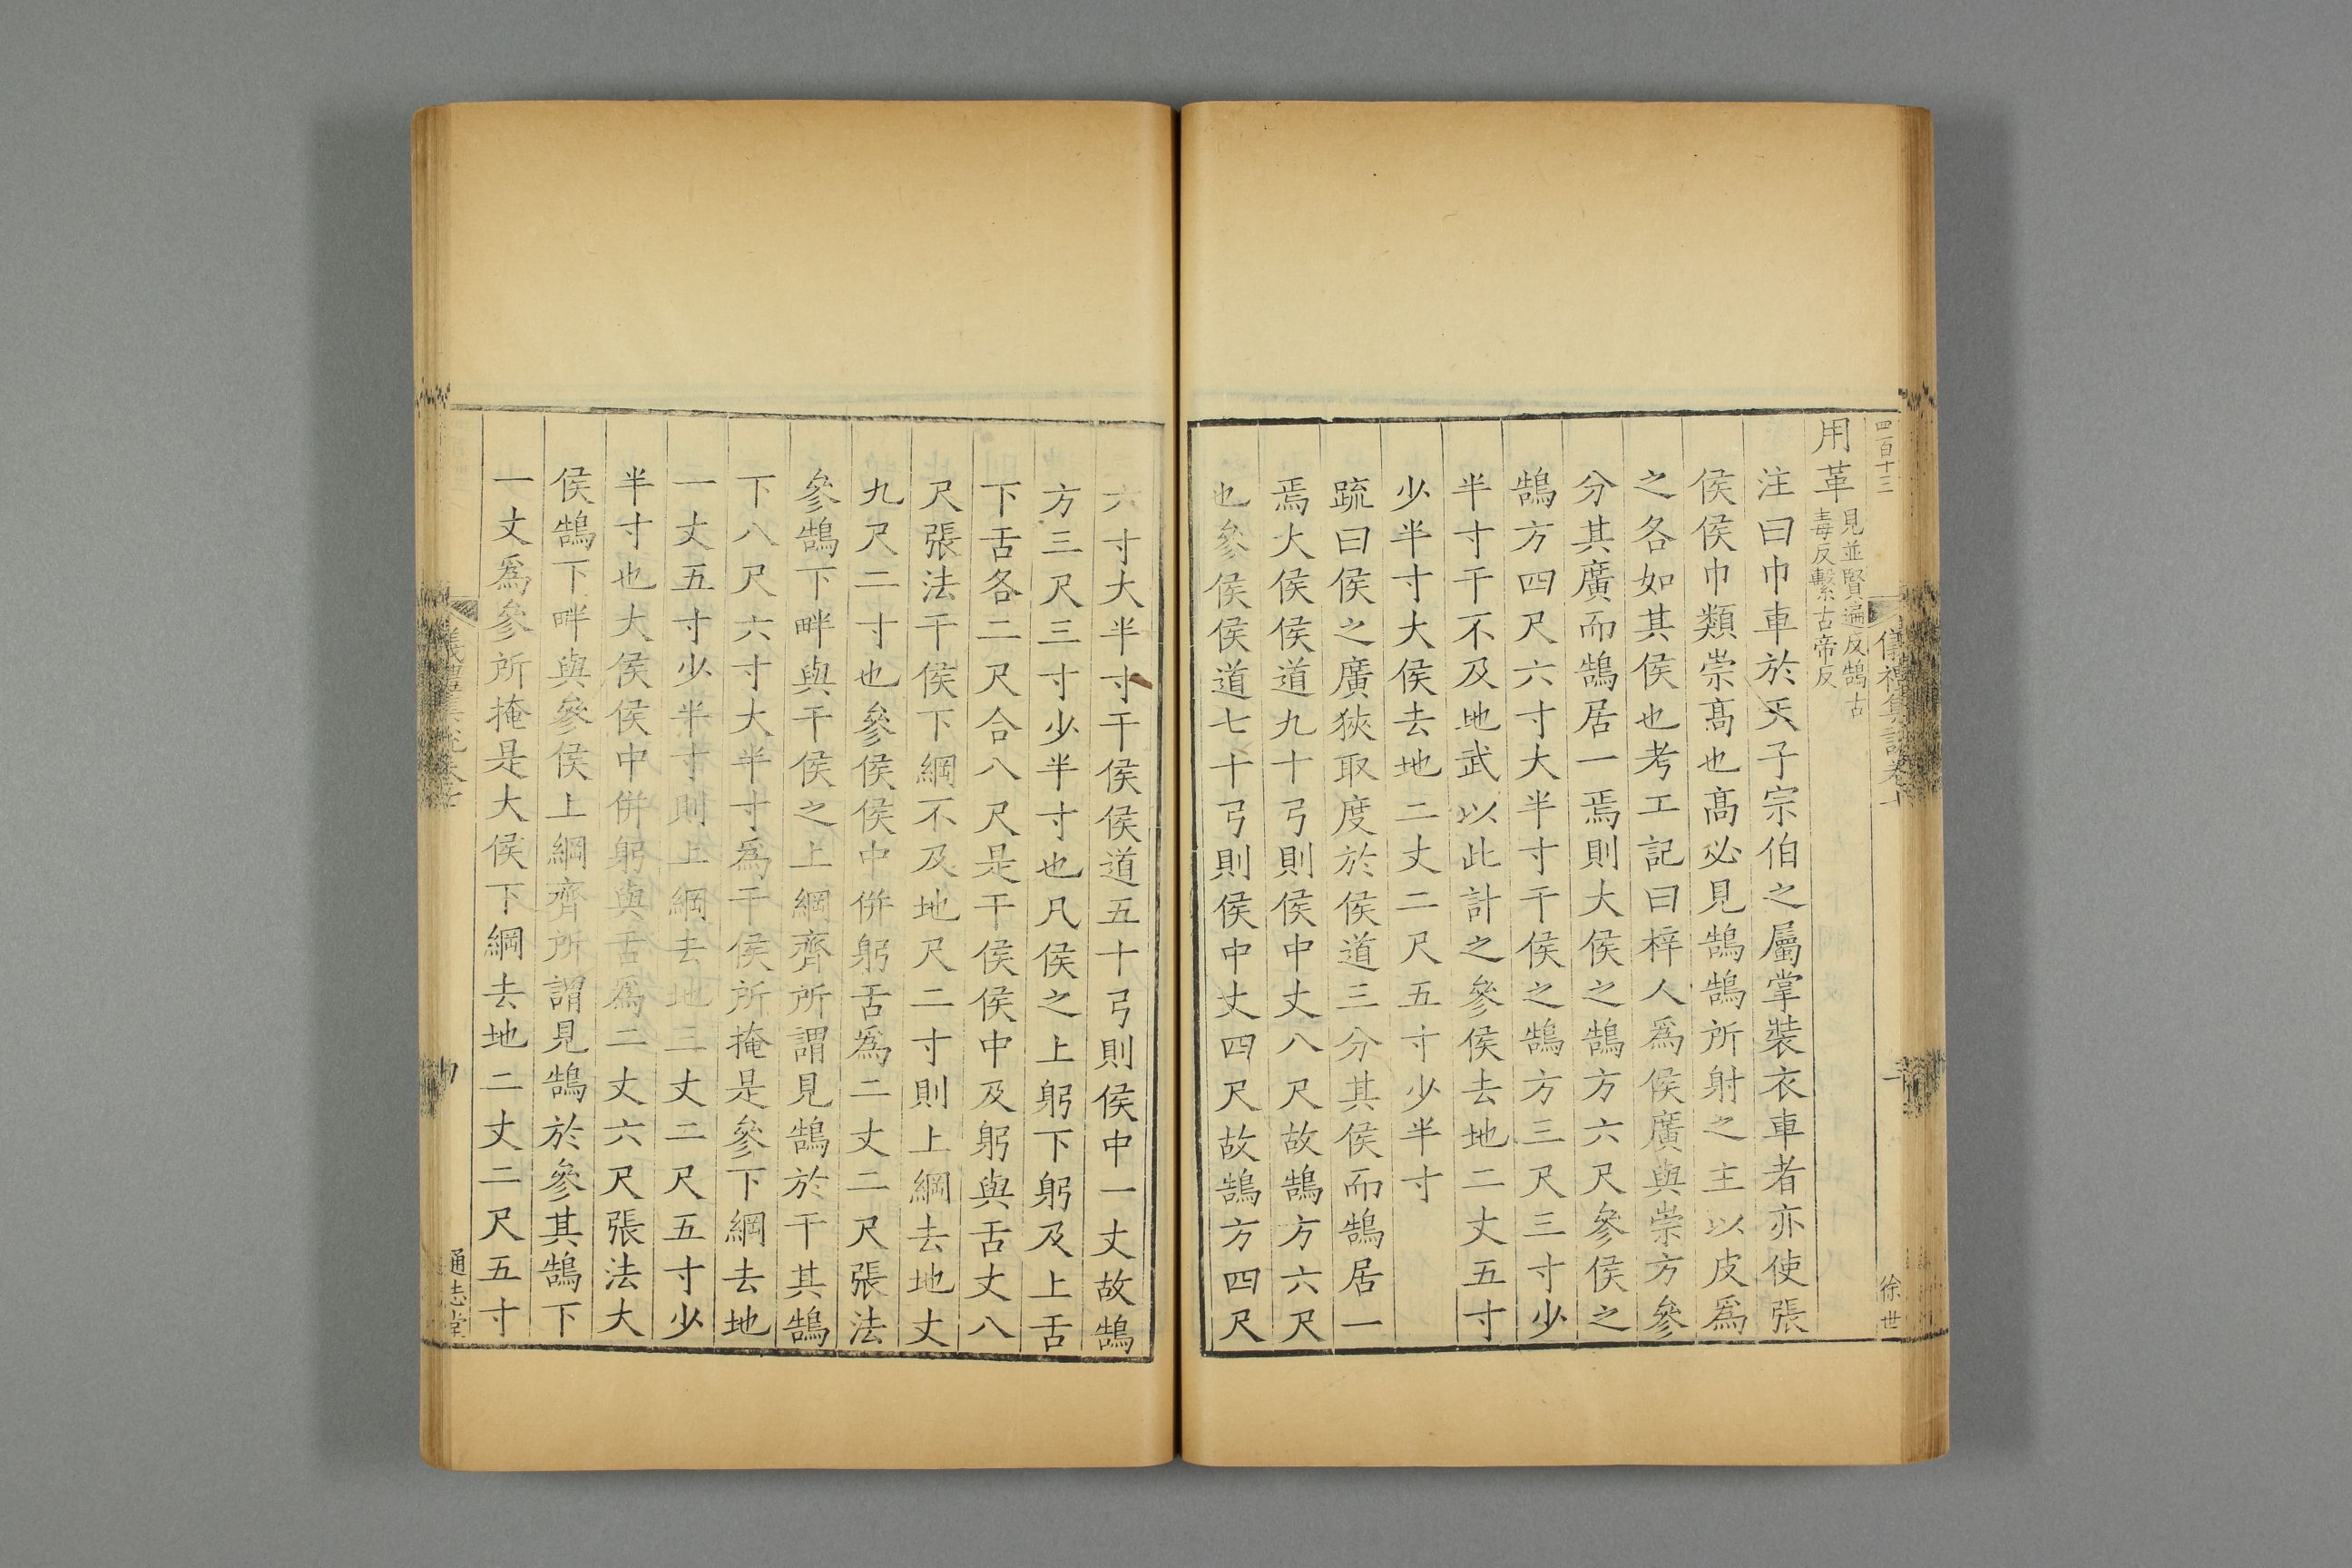 四百十三
徐世
用革見並賢遍反鵠古
毒反繫古帝反
注曰巾車於天子宗伯之屬掌裝衣車者亦使張
侯侯巾類崇高也高必見鵠鵠所射之主以皮爲
之各如其侯也考工記曰梓人爲侯廣與崇方參
分其廣而鵠居一焉則大侯之鵠方六尺參侯之
鵠方四尺六寸大半寸干侯之鵠方三尺三寸少
半寸干不及地武以此計之參侯去地二丈五寸
少半寸大侯去地二丈二尺五寸少半寸
疏曰侯之廣狹取度於侯道三分其侯而鵠居一
焉大侯侯道九十弓則侯中丈八尺故鵠方六尺
也參侯侯道七十弓則侯中丈四尺故鵠方四尺
六寸大半寸干侯侯道五十弓則侯中一丈故鵠
方三尺三寸少半寸也凡侯之上躬下躬及上舌
下舌各二尺合八尺是干侯侯中及躬與舌丈八
尺張法干侯下綱不及地尺二寸則上綱去地丈
九尺二寸也參侯侯中併躬舌爲二丈二尺張法
參鵠下畔與干侯之上綱齊所謂見鵠於干其鵠
下八尺六寸大半寸爲干侯所掩是參下綱去地
一丈五寸少半寸則上綱去地三丈二尺五寸少
半寸也大侯侯中併躬與舌爲二丈六尺張法大
侯鵠下畔與參侯上綱齊所謂見鵠於參其鵠下
一丈爲參所掩是大侯下綱去地二丈二尺五寸
通志堂